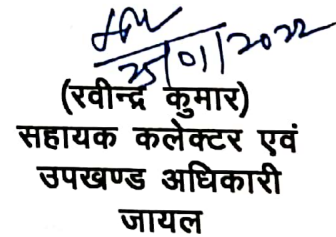 25/01/2022
(रवीन्द्र कुमार)
सहायक कलेक्टर एवं
उपखण्ड अधिकारी
जायल